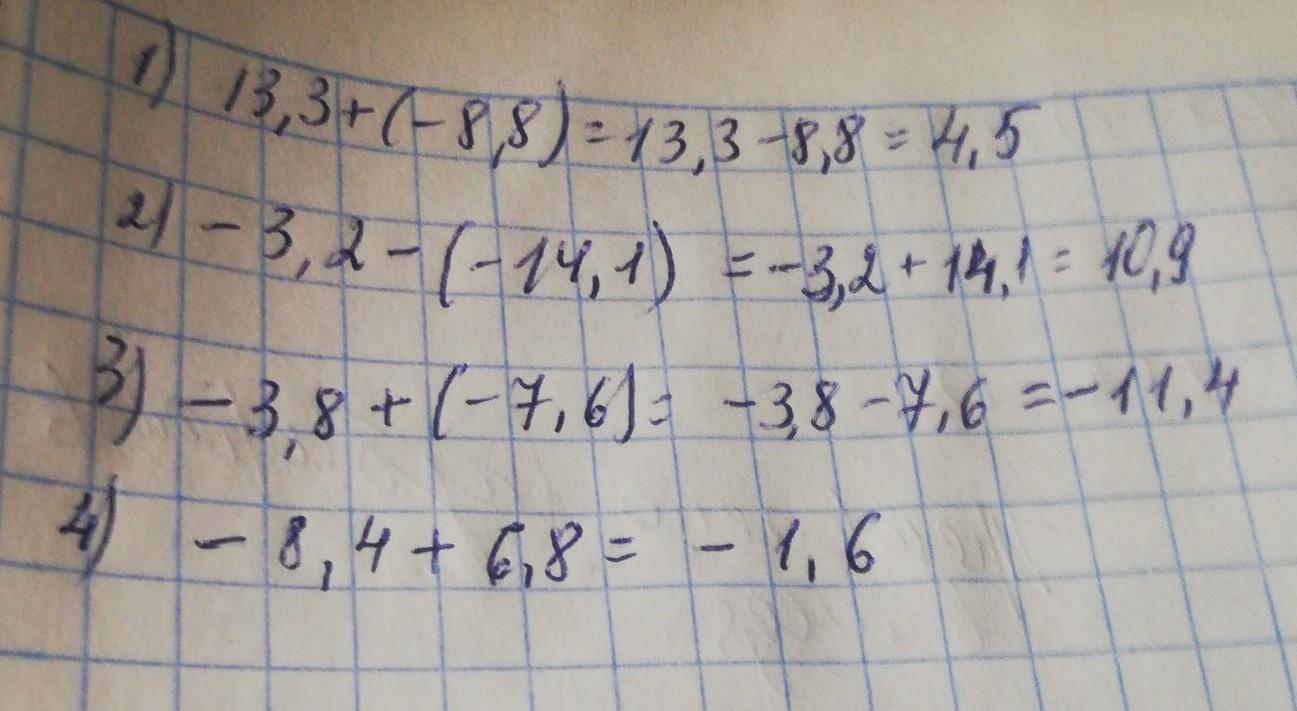 1) 13,3+(-8,8)=13,3-8,8=4,5
2) -3,2-(-14,1) =-3,2+14,1=10,9
3) -3,8+(-7,6)= -3,8-7,6=-11,4
4) -8,4+6,8=-1,6